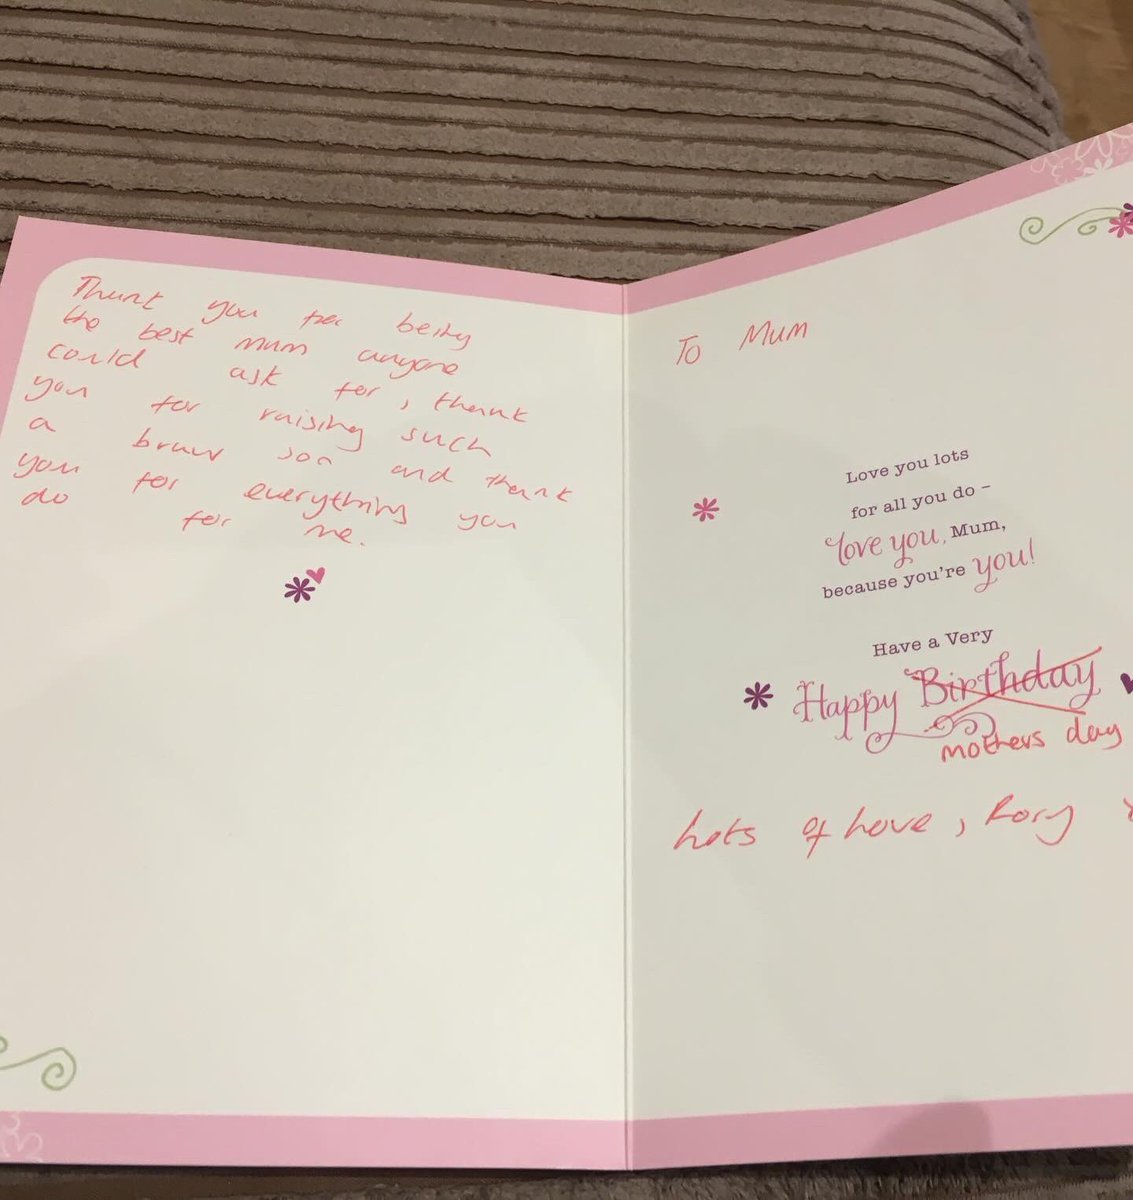 Thank you for being
the best mum anyone
could ask for, thank
you for raising such
a braw son and thank
you for everything you
do for me.
To Mum
Love you lots
for all you do –
love you, Mum,
because you're you!
Have a Very
Happy Birthday
mothers day
Lots of Love, Rory x